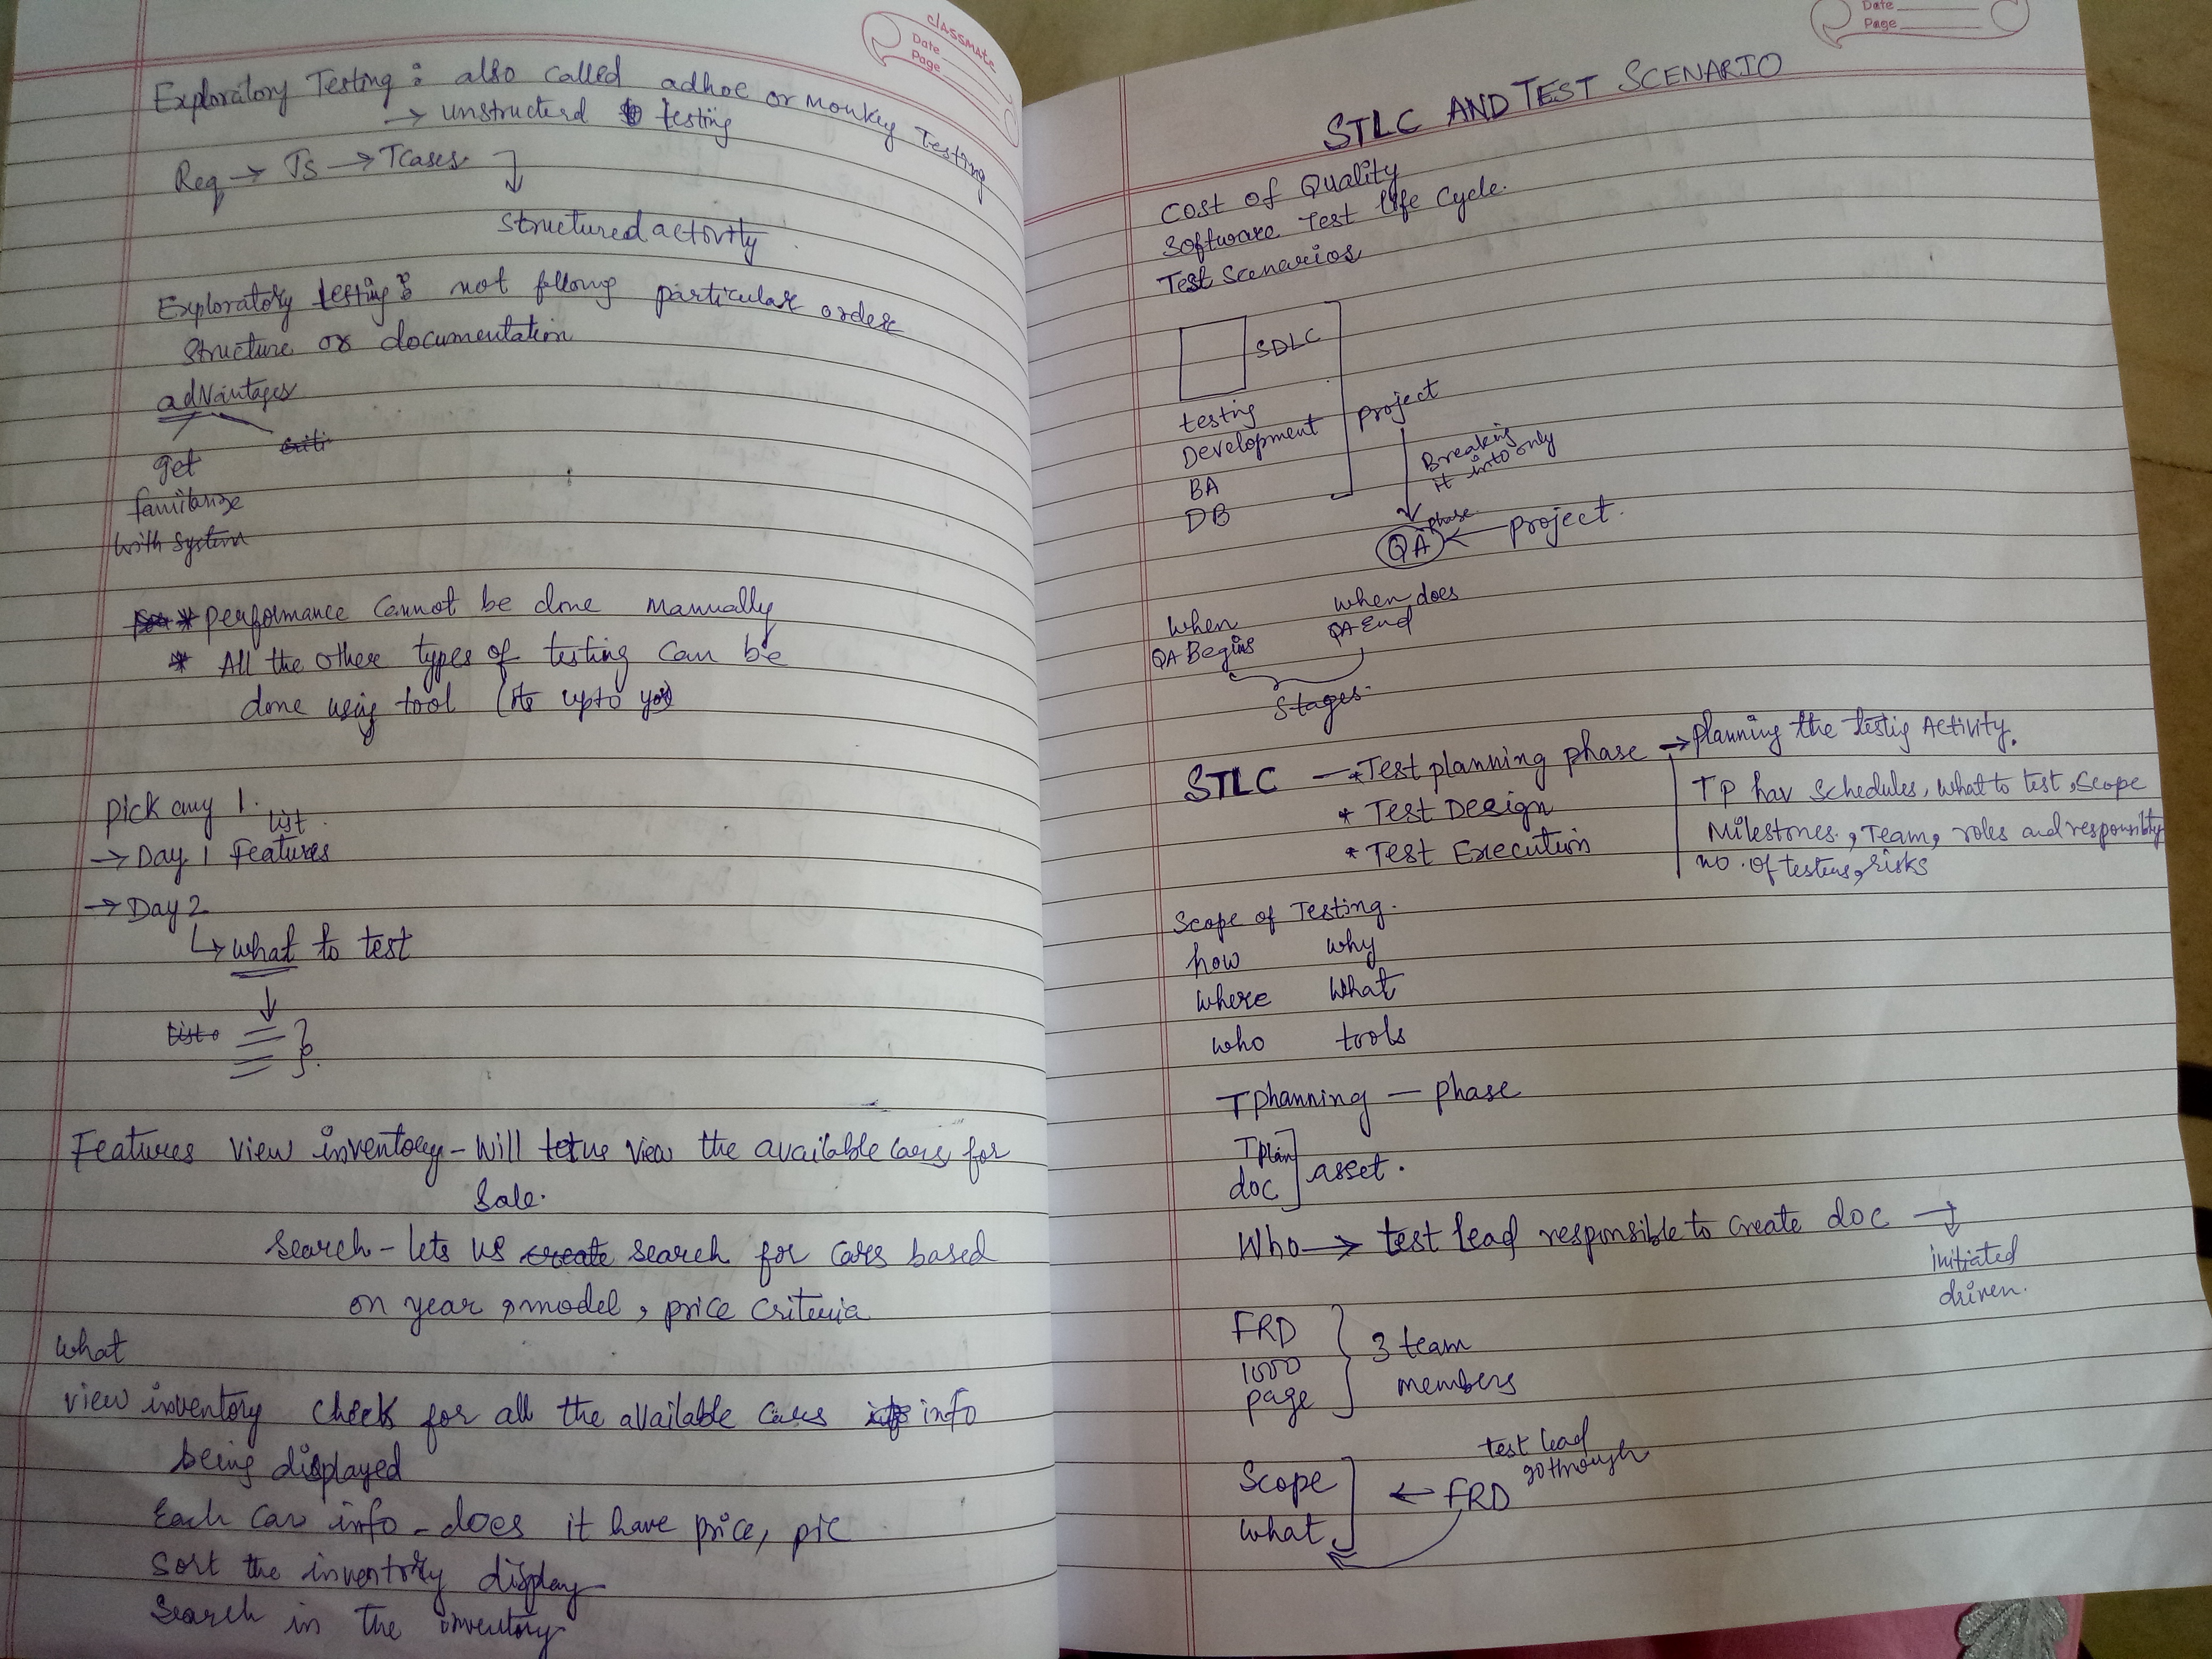 classmate
Date
Page
Exploratory Testing : also called adhoc or Monkey Testing
→ unstructerd testing
Req → TS → Tcases
structured activity
Exploratory testing : not fllong particular order
structure or documentation
advantages
get
with system
* performance cannot be done manually
* All the other types of testing can be
done using tool (its upto you)
pick any 1.
list
→ Day 1 Features
→ Day 2
↳ what to test
list
Features view inventory - will let us view the available cars for
Sale.
search - lets us create search for cars based
on year, model, price criteria
what
view inventory check for all the available cars info
being displayed
Each car info - does it have price, pic
Sort the inventory display
Search in the inventory
Date
Page
STLC AND TEST SCENARIO
Cost of Quality
Software Test life Cycle.
Test Scenarios
SDLC
testig
Development
BA
DB
project
Breaking
it into only
phase
QA ← project.
when
QA Begins
when does
QA End
Stages.
STLC — * Test planning phase → planning the testig Activity.
* Test Design
* Test Execution
TP hav schedules, what to test, scope
Milestones, Team, roles and responsibity
no. of testers, risks
Scope of Testing.
how why
where what
who tools
Tphanning — phase
Tplan
doc
asset.
Who → test lead responsible to create doc →
initiated
driven.
FRD
1000
page
3 team
members
Scope
what
← FRD
test lead
go through